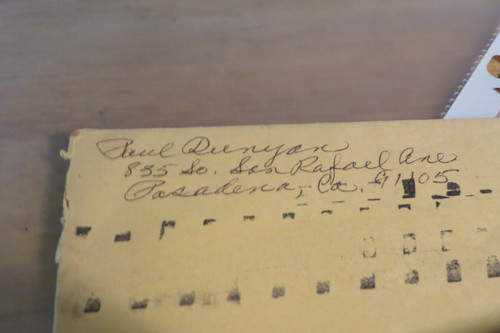 Paul Runyan
835 So. San Rafael Ave
Pasadena, Ca. 91105